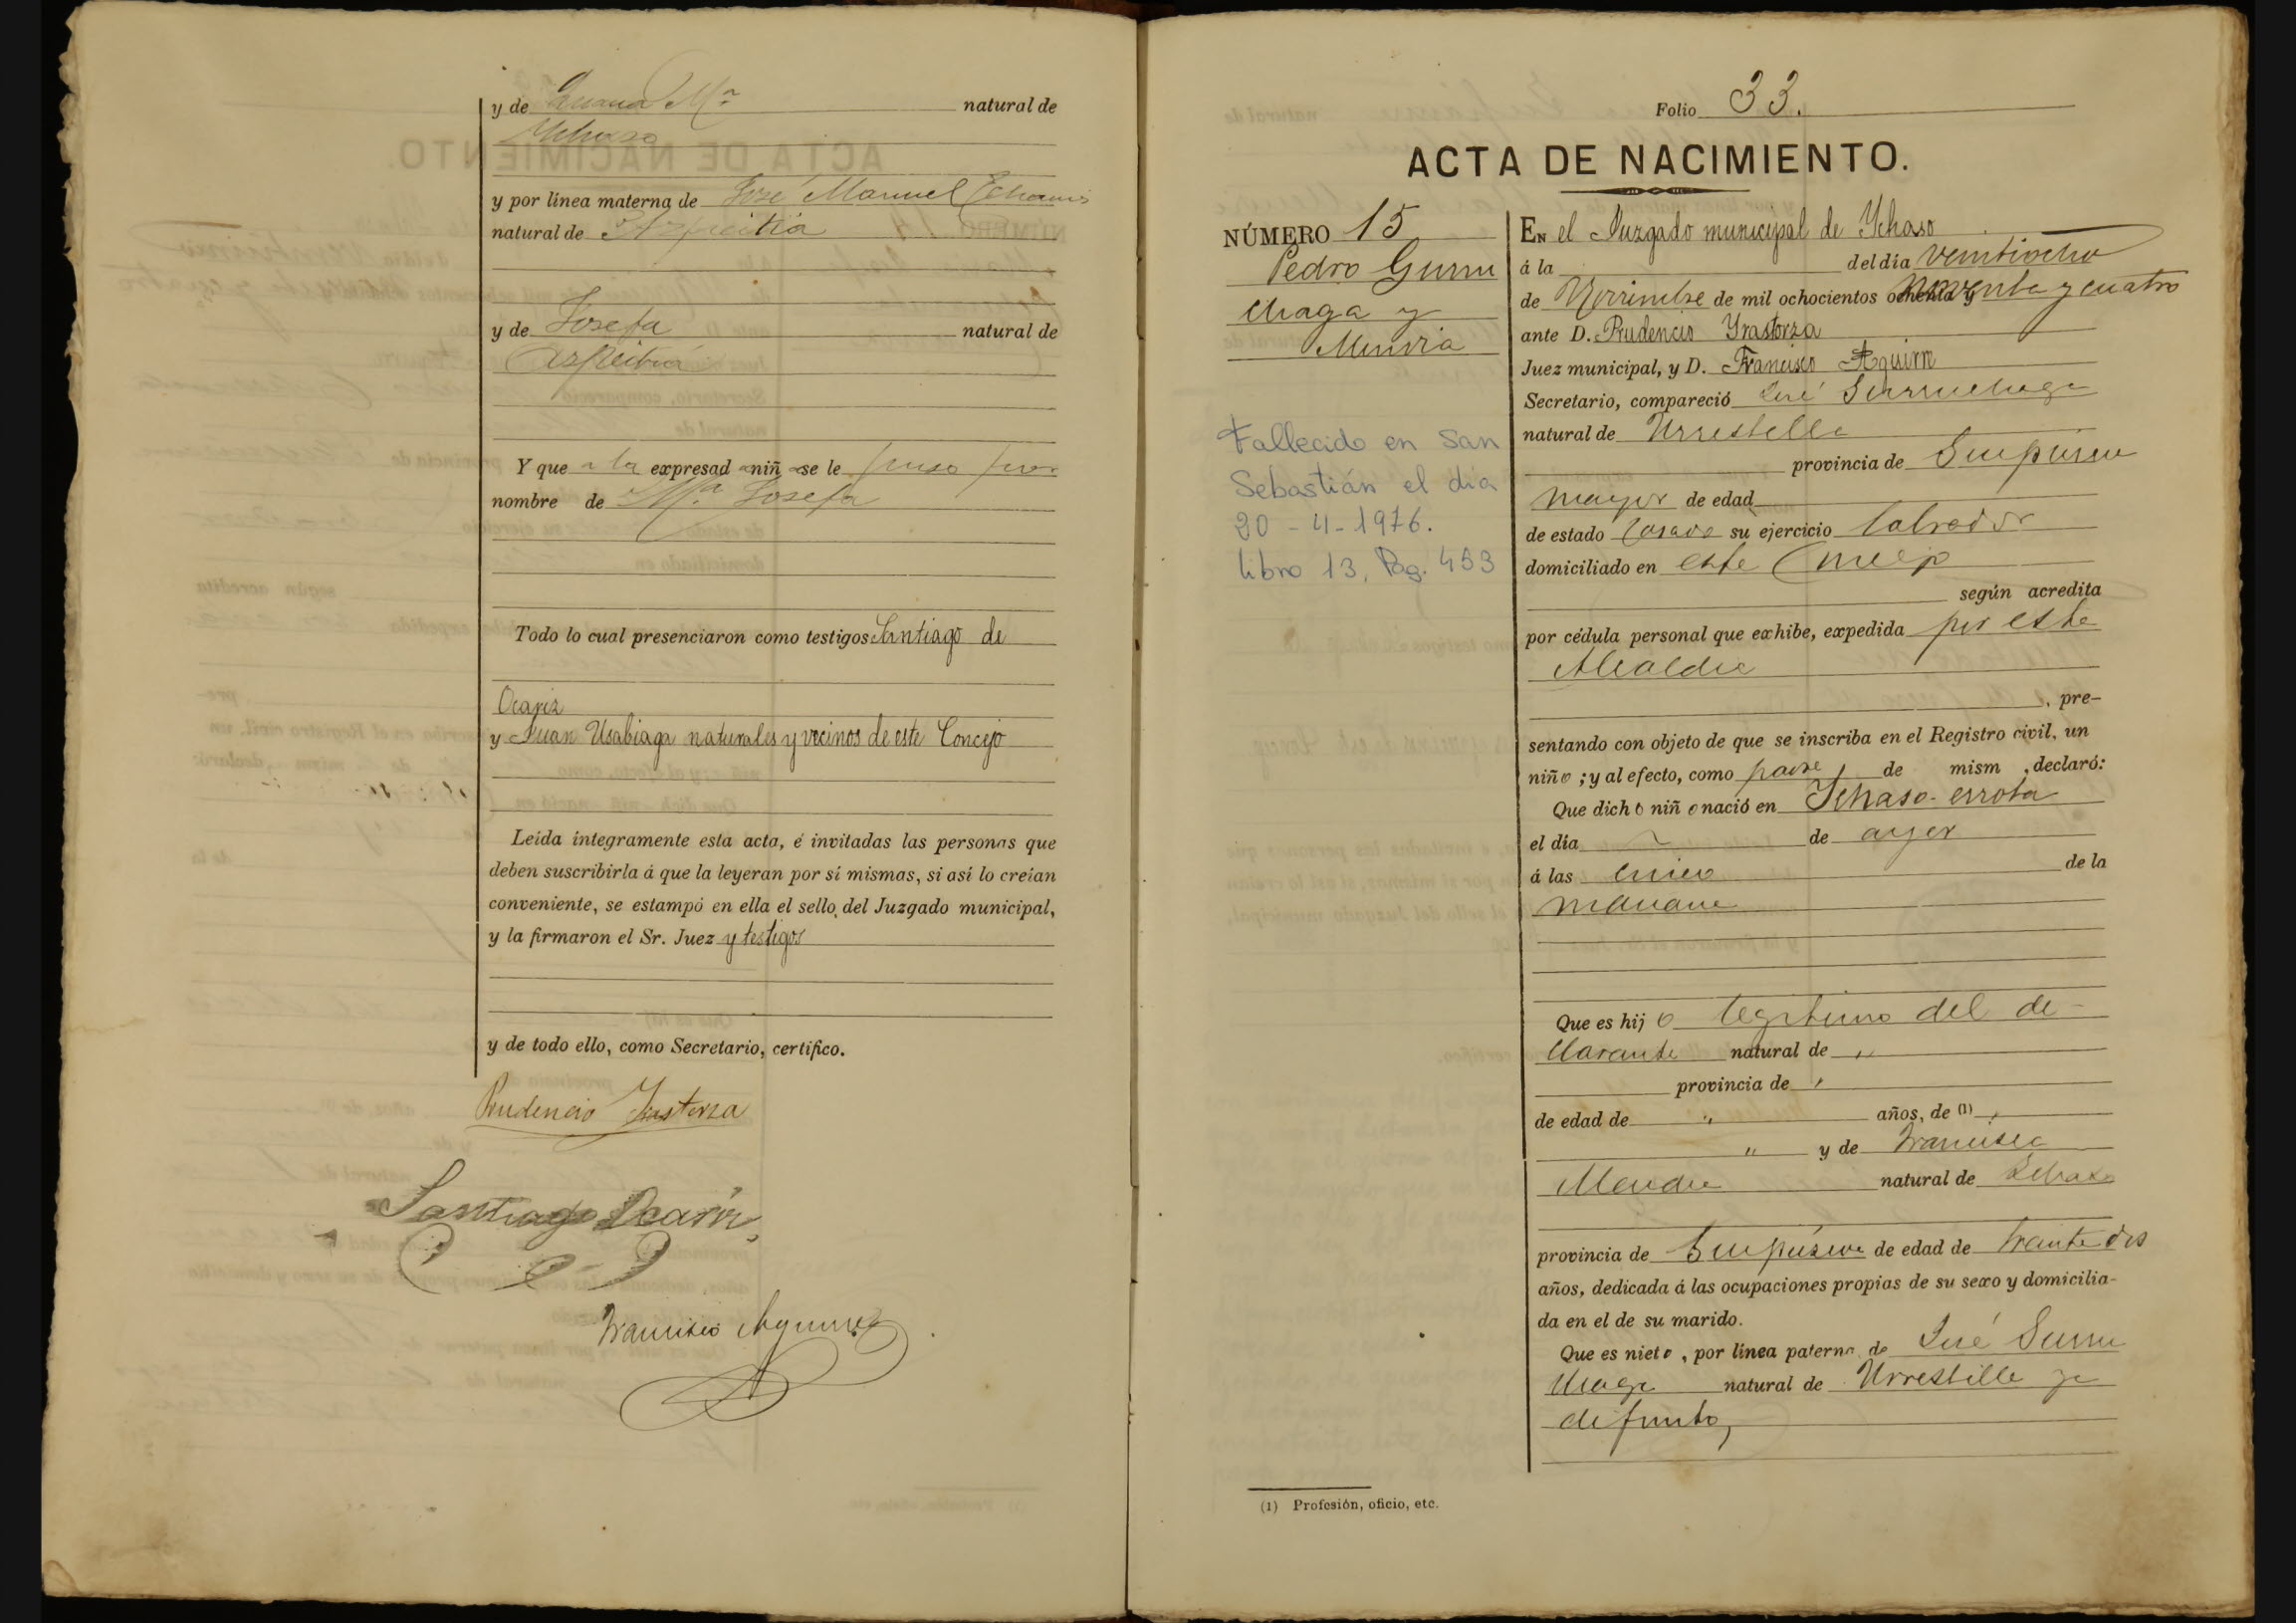 y de Juana Mª natural de
Ychaso
y por línea materna de José Manuel Echanis
natural de Azpeitia
y de Josefa natural de
Azpeitia
Y que a la expresad a niñ a se le puso por
nombre de Mª Josefa
Todo lo cual presenciaron como testigos Santiago de
Ocariz
y Juan Usabiaga naturales y vecinos de este Concejo
Leída íntegramente esta acta, é invitadas las personas que
deben suscribirla á que la leyeran por sí mismas, si así lo creían
conveniente, se estampó en ella el sello del Juzgado municipal,
y la firmaron el Sr. Juez y testigos
y de todo ello, como Secretario, certifico.
Prudencio Yrastorza
Santiago Ocariz
Francisco Aguirre
Folio 33.
ACTA DE NACIMIENTO.
NÚMERO 15
Pedro Gurru
chaga y
Mendia
Fallecido en San
Sebastián el dia
20-4-1976.
libro 13, Pag. 453
EN el Juzgado municipal de Ychaso
á la del día veintiocho
de Noviembre de mil ochocientos ochenta y noventa y cuatro
ante D. Prudencio Yrastorza
Juez municipal, y D. Francisco Aguirre
Secretario, compareció José Gurruchaga
natural de Urrestilla
provincia de Guipuzcoa
mayor de edad
de estado casado su ejercicio labrador
domiciliado en este Concejo
según acredita
por cédula personal que exhibe, expedida por esta
Alcaldia
, pre-
sentando con objeto de que se inscriba en el Registro civil, un
niño ; y al efecto, como padre de mism , declaró:
Que dicho niñ o nació en Ychaso-errota
el día de ayer
á las cinco de la
mañana
Que es hij o legitimo del de-
clarante natural de "
provincia de "
de edad de " años, de (1) "
" y de Francisca
Mendia natural de Ychaso
provincia de Guipúzcoa de edad de treinta dos
años, dedicada á las ocupaciones propias de su sexo y domicilia-
da en el de su marido.
Que es nieto , por línea paterna de José Gurru
chaga natural de Urrestilla ya
difunto,
(1) Profesión, oficio, etc.